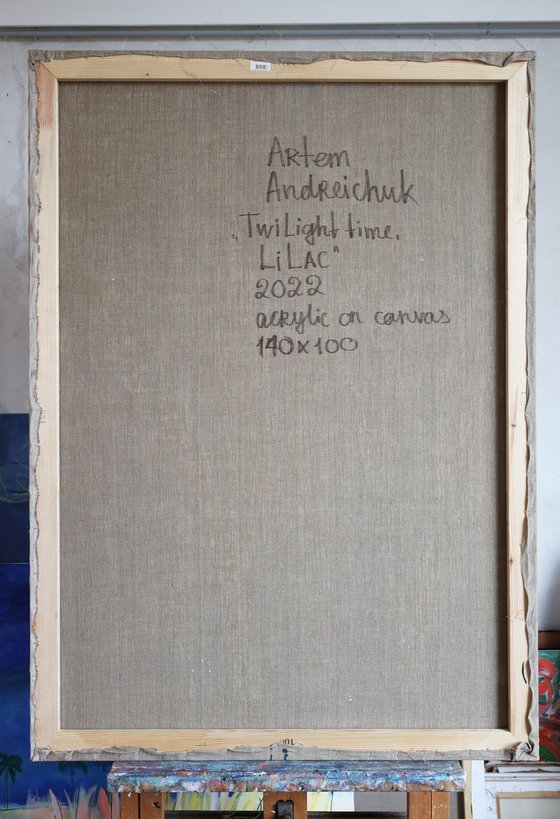 Artem
Andreichuk
„Twilight time.
Lilac"
2022
acrylic on canvas
140x100
100